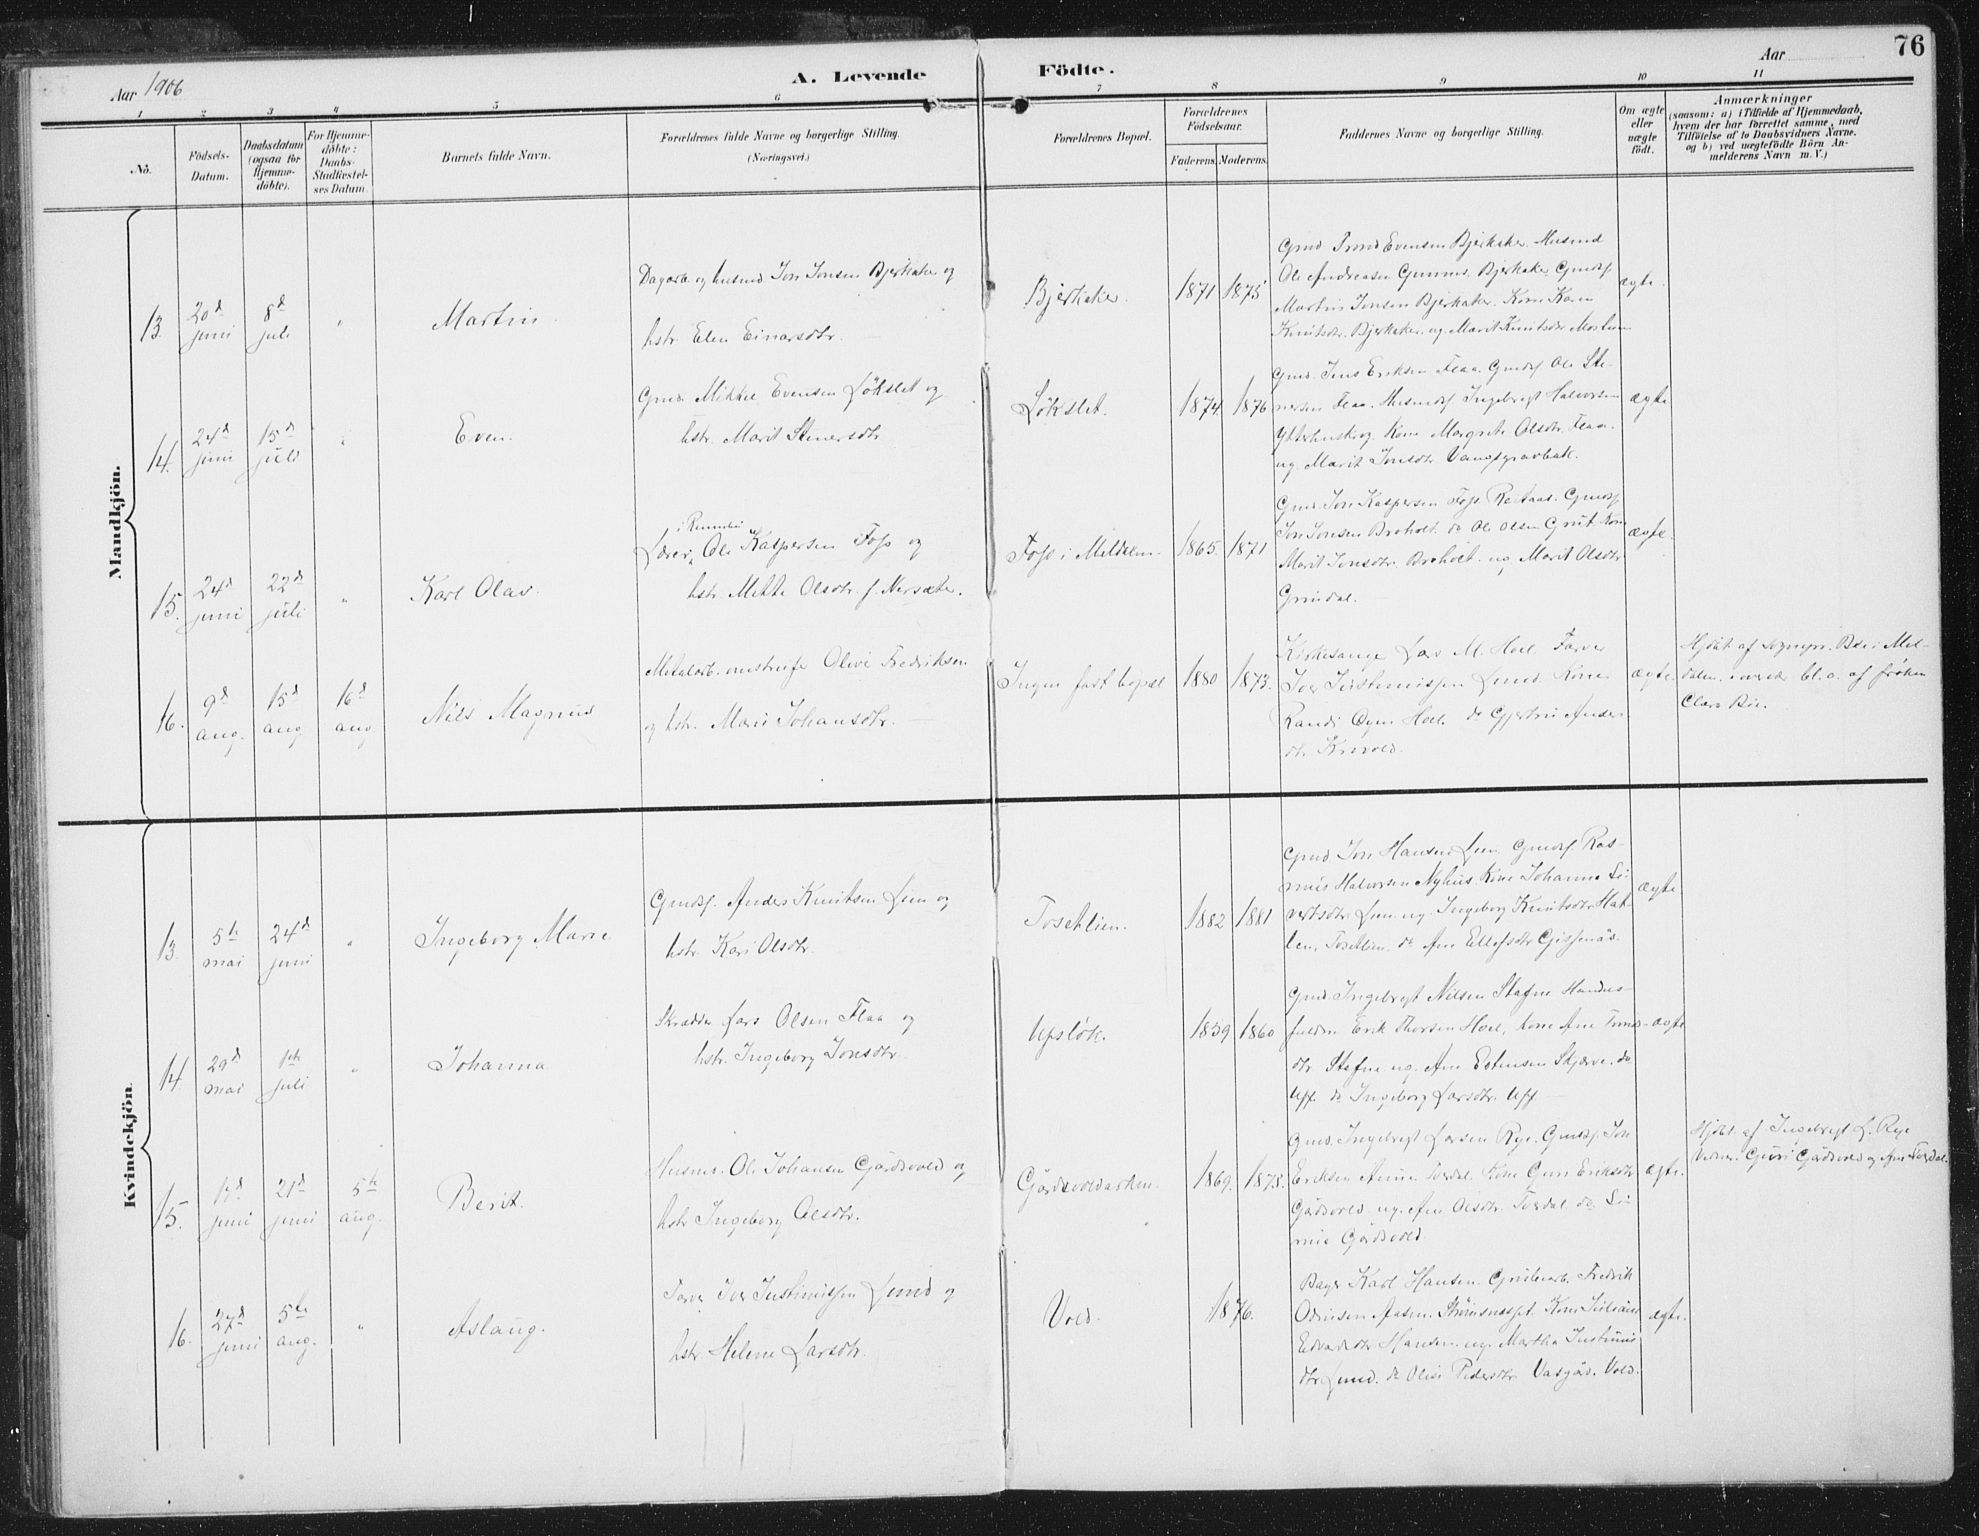 76
Aar 1906
A. Levende Födte.
Aar
1 2 3 4 5 6 7 8 9 10 11
No.
Födsels-
Datum.
Daabsdatum
(ogsaa for
Hjemme-
döbte).
For Hjemme-
döbte:
Daabs-
Stadfæstel-
ses Datum.
Barnets fulde Navn.
Forældrenes fulde Navne og borgerlige Stilling.
(Næringsvei.)
Forældrenes Bopæl.
Forældrenes
Födselsaar.
Faderens. Moderens.
Faddernes Navne og borgerlige Stilling.
Om ægte
eller
uægte
födt.
Anmærkninger
(saasom: a) i Tilfælde af Hjemmedaab,
hvem der har forrettet samme, med
Tilföielse af to Daabsvidners Navne,
og b) ved uægtefödte Börn An-
melderens Navn m. V.)
Mandkjön.
13.
20d
juni
8d
juli
"
Martin.
Dagarb. og husmd. Jon Jonsen Bjerkaker og
hstr. Elen Einarsdtr.
Bjerkaker.
1871 1875
Gmd. Trond Evensen Bjerkaker. Husmd
Ole Andreasen Gunnes. Bjerkaker. Gmdsf.
Martin Jonsen Bjerkaker. Kone Karen
Knutsdtr. Bjerkaker. og Marit Knutsdtr.
ægte.
14.
24d
juni
15d
juli
"
Even.
Gmd. Mikkel Evensen Løkslet og
hstr. Marit Stenersdtr.
Løkslet.
1874 1876
Gmd. Jens Eriksen Flaa. Gmdsf. Ole Ste-
nersen Flaa. Husmdsf Ingebrigt Halvorsen
Kone Margrete Olsdtr. Flaa.
og Marit Jonsdtr.
ægte
15.
24d
juni
22d
juli
"
Karl Olav.
i Rennebu
Lærer, Ole Kaspersen Foss og
hstr. Mette Olsdtr. f. Nersæter.
Foss i Meldalen.
1865. 1871
Gmd. Jon Kaspersen Foss. Gmdsf
Jon Jonsen Broholt. do Ole Olsen Grut. Kone
Marit Jonsdtr. Broholt. og Marit Olsdtr
Grindal.
ægte.
16.
9d
aug.
15d
aug
16d
aug
Nils Magnus
Metalarb. omstreifer Olive Fredriksen
og hstr. Marie Johansdtr.
Ingen fast bopæl
1880 1873.
Kirkesanger Lars M. Hoel. Farver
Iver Justinussen Lund. Kone
Randi Hoel. do Gjertru Anders
dtr.
ægte.
Hjdøbt af Sognepr. Bøe i Mel-
dalen. overvær bl. a. af frøken
Clara Bøe.
Kvindekjön.
13.
5te
mai
24d
juni
"
Ingeborg Marie
Gmdsf. Anders Knutsen Lien og
hstr. Kari Olsdtr.
Tosetlien.
1882 1881
Gmd. Jon Hansen Lien. Gmdsf. Ras-
mus Halvorsen Nyhus. Kone Johanna Si-
vertsdtr. Lien. og Ingeborg Knutsdtr. Hat-
len. Tosetlien. do Ane Ellefsdtr.
ægte
14.
29d
mai
1ste
juli
"
Johanna
Skrædder Lars Olsen Flaa og
hstr. Ingeborg Jonsdtr.
Upsløk.
1859 1860
Gmd. Ingebrigt Nilsen Stafne Handels-
fuldm. Erik Thorsen Hoel, Kone Ane
dtr. Stafne og Ane Estensen Skjerve. do
Uff do Ingeborg Larsdtr. Uff
ægte
15.
17d
juni
21d
juni
5te
aug.
Berit.
Husmd. Ole Johansen Gårdsvold og
hstr Ingeborg Olsdtr.
1869. 1878.
Gmd. Ingebrigt Larsen Rye. Gmdsf. Jon
Eriksen Kone Guri Eriksdtr
Gårdsvold og Ane Olsdtr.
Gårdsvold
ægte.
Hjdøbt. af Ingebrigt L. Rye
Vidner. Guri Gårdsvold og Ane
16.
27d
juni
5te
aug.
"
Aslaug.
Farver Iver Justinussen Lund og
hstr. Helene Larsdtr.
Vold.
1876.
Bager Karl Hansen. Grubearb. Fredrik
Odinsen Aasen. Kone Juliane
Edvardsdtr Hansen. og Martha Justinus
dtr. Lund. do Pedersdtr. Vold.
ægte.